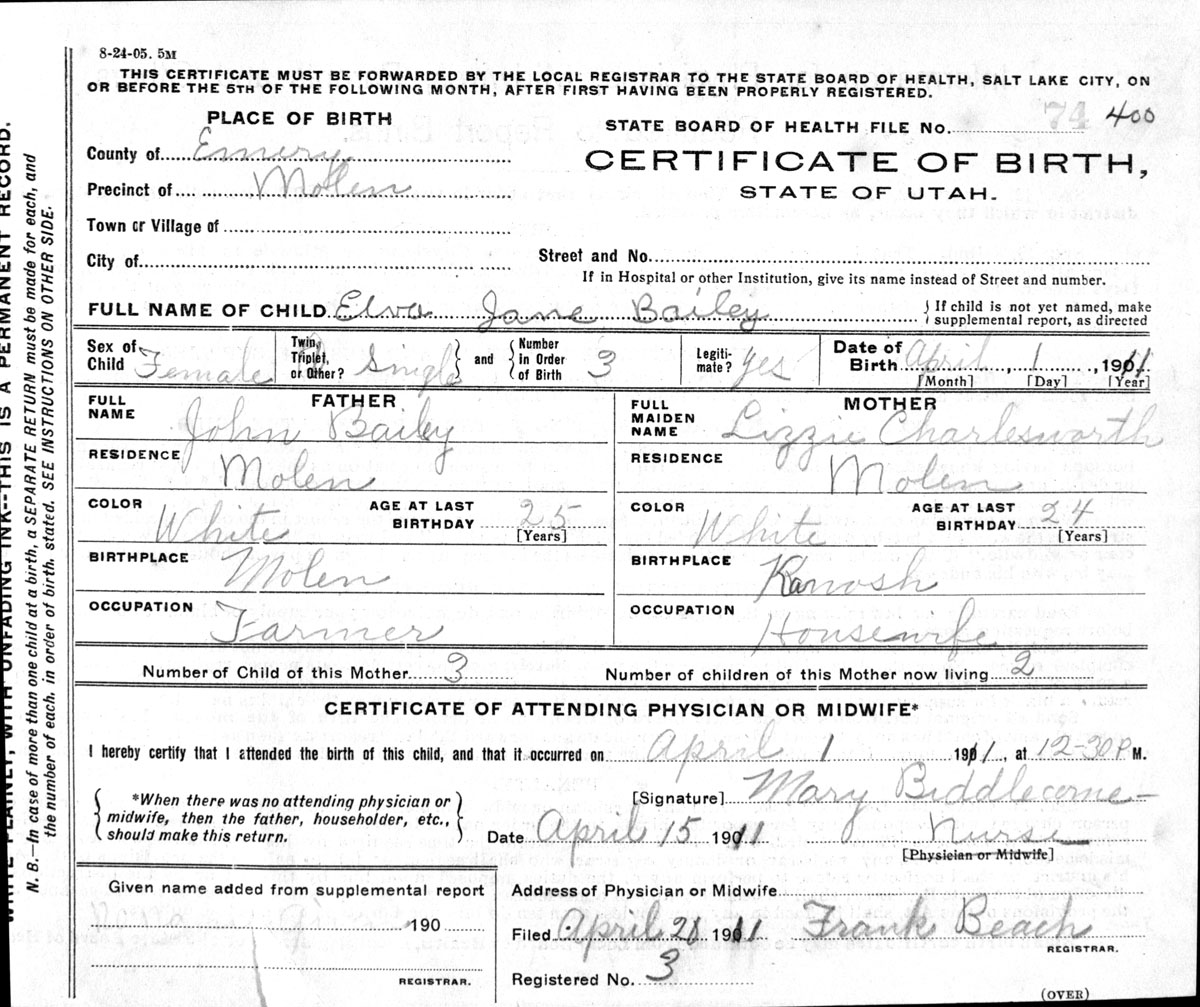 8-24-05. 5M
THIS CERTIFICATE MUST BE FORWARDED BY THE LOCAL REGISTRAR TO THE STATE BOARD OF HEALTH, SALT LAKE CITY, ON
OR BEFORE THE 5TH OF THE FOLLOWING MONTH, AFTER FIRST HAVING BEEN PROPERLY REGISTERED.
PLACE OF BIRTH
STATE BOARD OF HEALTH FILE NO. 74 400
County of Emery
CERTIFICATE OF BIRTH,
Precinct of Molen
STATE OF UTAH.
Town or Village of
City of
Street and No.
If in Hospital or other Institution, give its name instead of Street and number.
FULL NAME OF CHILD Elva Jane Bailey
{ If child is not yet named, make
supplemental report, as directed
Sex of Child Female
Twin, Triplet, or Other? Single } and { Number in Order of Birth 3
Legiti- mate? Yes
Date of Birth April, 1, 1911
[Month] [Day] [Year]
FATHER
FULL NAME John Bailey
RESIDENCE Molen
COLOR White
AGE AT LAST BIRTHDAY 25
[Years]
BIRTHPLACE Molen
OCCUPATION Farmer
MOTHER
FULL MAIDEN NAME Lizzie Charlesworth
RESIDENCE Molen
COLOR White
AGE AT LAST BIRTHDAY 24
[Years]
BIRTHPLACE Kanosh
OCCUPATION Housewife
Number of Child of this Mother 3
Number of children of this Mother now living 2
CERTIFICATE OF ATTENDING PHYSICIAN OR MIDWIFE*
I hereby certify that I attended the birth of this child, and that it occurred on April 1 1911, at 12-30 P M.
{ *When there was no attending physician or
midwife, then the father, householder, etc.,
should make this return. }
[Signature] Mary Biddlecome
Date April 15 1911 Nurse
[Physician or Midwife]
Given name added from supplemental report
190
REGISTRAR.
Address of Physician or Midwife
Filed April 28 1911 Frank Beach
REGISTRAR.
Registered No. 3
(OVER)
WRITE PLAINLY, WITH UNFADING INK--THIS IS A PERMANENT RECORD.
N. B.—In case of more than one child at a birth, a SEPARATE RETURN must be made for each, and
the number of each, in order of birth, stated. SEE INSTRUCTIONS ON OTHER SIDE.